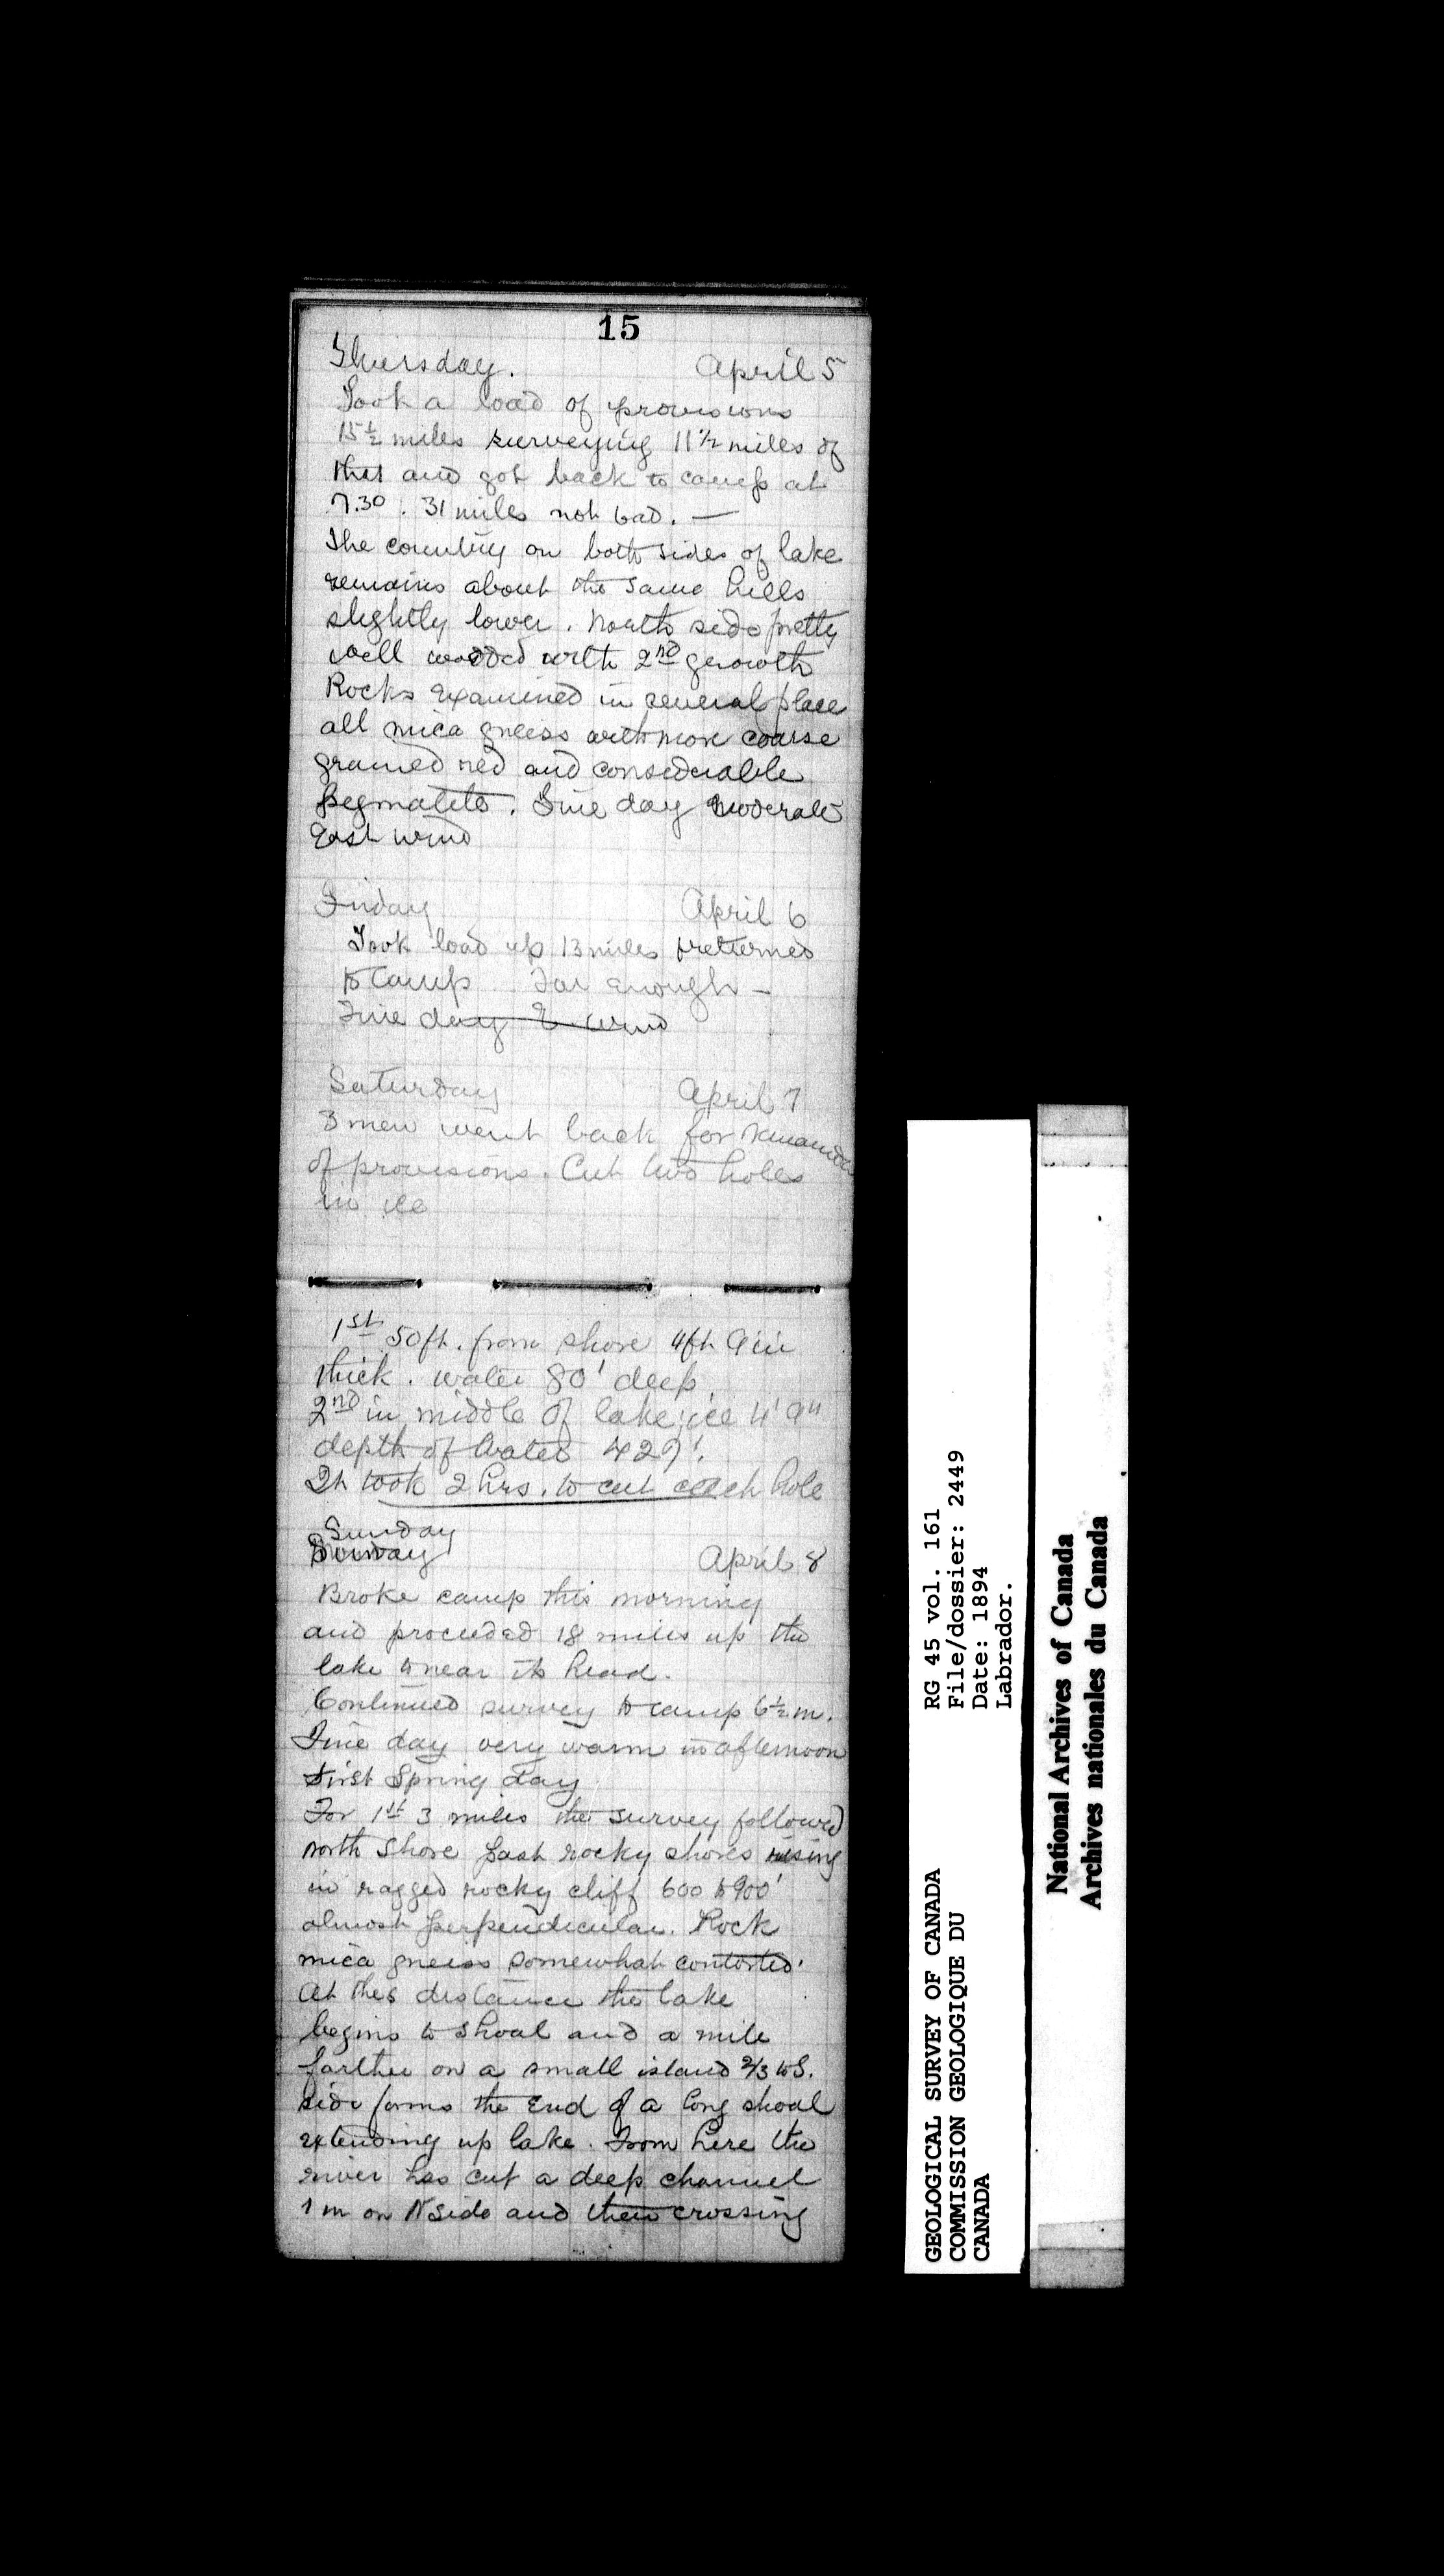 15
Thursday. April 5
Took a load of provisions
15½ miles surveying 11½ miles of
this and got back to camp at
7.30. 31 miles not bad. —
The country on both sides of lake
remains about the same hills
slightly lower. North side pretty
well wooded with 2nd growth
Rocks examined in several place
all mica gneiss with more coarse
grained red and considerable
pegmatite. Fine day moderate
East wind
Friday April 6
Took load up 13 miles & returned
to Camp Far enough —
Fine day E wind
Saturday April 7
3 men went back for remainder
of provisions. Cut two holes
in ice
1st 50 ft. from shore 4ft 9in
thick. water 80' deep.
2nd in middle of lake; ice 4' 9"
depth of water 427'.
It took 2 hrs. to cut each hole
Sunday
Sunday April 8
Broke camp this morning
and proceeded 18 miles up the
lake to near its head.
Continued survey to camp 6½ m.
Fine day very warm in afternoon
first Spring day
For 1st 3 miles the survey followed
north shore past rocky shores rising
in ragged rocky cliff 600 to 900'
almost perpendicular. Rock
mica gneiss somewhat contorted.
At this distance the lake
begins to shoal and a mile
farther on a small island 2/3 to S.
side forms the end of a long shoal
extending up lake. From here the
river has cut a deep channel
1 m on N side and then crossing
GEOLOGICAL SURVEY OF CANADA
COMMISSION GEOLOGIQUE DU
CANADA
RG 45 vol. 161
File/dossier: 2449
Date: 1894
Labrador.
National Archives of Canada
Archives nationales du Canada